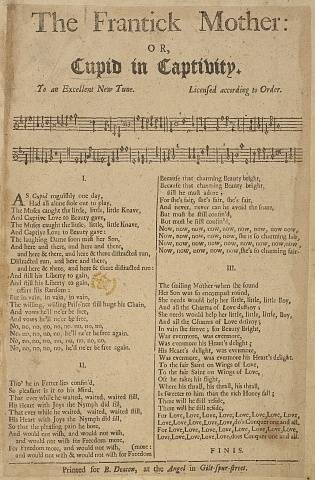 The Frantick Mother:
OR,
Cupid in Captivity.
To an Excellent New Tune. Licensed according to Order.
I.
AS Cupid roguishly one day,
Had all alone stole out to play,
The Muses caught the little, little, little Knave,
And Captive Love to Beauty gave;
The Muses caught the little, little, little Knave,
And Captive Love to Beauty gave:
The laughing Dame soon mist her Son,
And here and there, and here and there,
and here & there, and here & there distracted run,
Distracted run, and here and there,
and here & there, and here & there distracted run:
And still his Liberty to gain,
And still his Liberty to gain,
offers his Ransom:
But in vain, in vain, in vain,
The willing, willing Pris'ner still hugs his Chain,
And vows he'll ne'er be free,
And vows he'll ne'er be free,
No, no, no, no, no, no, no, no,
No, no, no, no, no, he'll ne'er be free again.
No, no, no, no, no, no, no, no,
No, no, no, no, no, he'll ne'er be free again.
II.
Tho' he in Fetter lies confin'd,
So pleasant is it to his Mind,
That ever while he waited, waited, waited still,
His Heart with Joys the Nymph did fill,
That ever while he waited, waited, waited still,
His Heart with Joys the Nymph did fill,
So that the pleasing pain he bore,
And would not with, and would not with,
and would not with for Freedom more,
For Freedom more, and would not with, (more:
and would not with & would not with for Freedom
Because that charming Beauty bright,
Because that charming Beauty bright,
still he must adore;
For she's fair, she's fair, she's fair,
And never, never can he avoid the snare,
But must be still confin'd,
But must be still confin'd,
Now, now, now, now, now, now, now, now, now,
Now, now, now, now, now, she is so charming fair.
Now, now, now, now, now, now, now, now, now,
Now, now, now, now, now, she is so charming fair.
III.
The smiling Mother when she found
Her Son was so encompast round,
She needs would help her little, little, little Boy,
And all the Charms of Love destroy;
She needs would help her little, little, little Boy,
And all the Charms of Love destroy;
In vain she strove, for Beauty Bright,
Was evermore, evermore,
Was evermore his Heart's delight;
His Heart's delight, was evermore,
Was evermore, was evermore his Heart's delight.
To the fair Saint on Wings of Love,
To the fair Saint on Wings of Love,
Oft he takes his flight,
Where his thrall, his thrall, his thrall,
Is sweeter to him than the rich Honey fall;
Thou wilt he still reside,
Thou wilt he still reside,
For Love, Love, Love, Love, Love, Love, Love, Love,
Love, Love, Love, Love, Love, does Conquer one and all.
For Love, Love, Love, Love, Love, Love, Love, Love,
Love, Love, Love, Love, Love, does Conquer one and all.
FINIS.
Printed for B. Deacon, at the Angel in Gilt-spur-street.